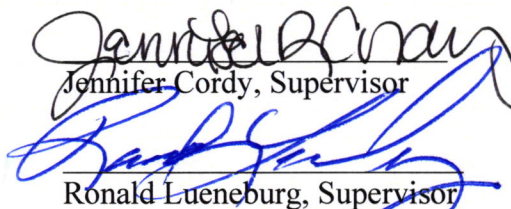 Jennifer R Cordy
Jennifer Cordy, Supervisor
Ronald Lueneburg, Supervisor